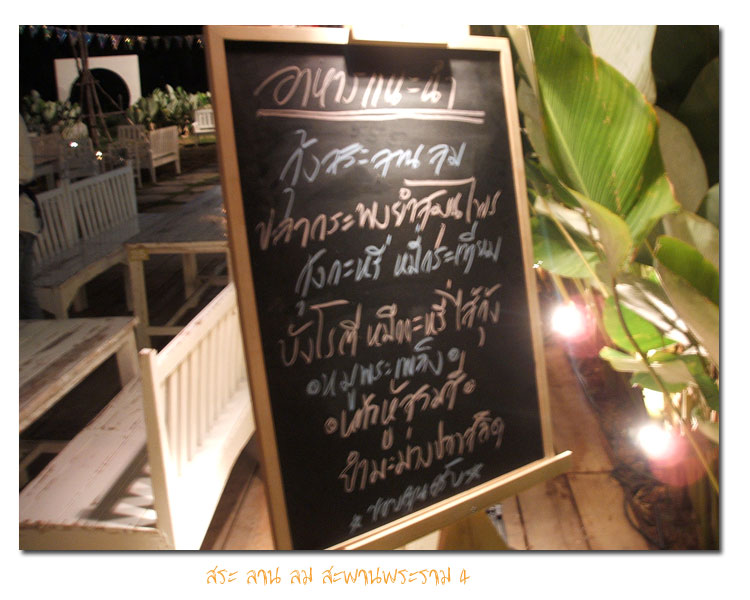 อาหารแนะนำ
กุ้งสระลานลม
ปลากระพงยำสมุนไพร
กุ้งกะหรี่ หมี่กระเทียม
บังโรตี หมี่กะหรี่ไส้กุ้ง
หมูพระเพลิง
เต้าหู้สามสี
ยำมะม่วงปลาสลิด
ขอบคุณครับ
สระ ลาน ลม สะพานพระราม 4